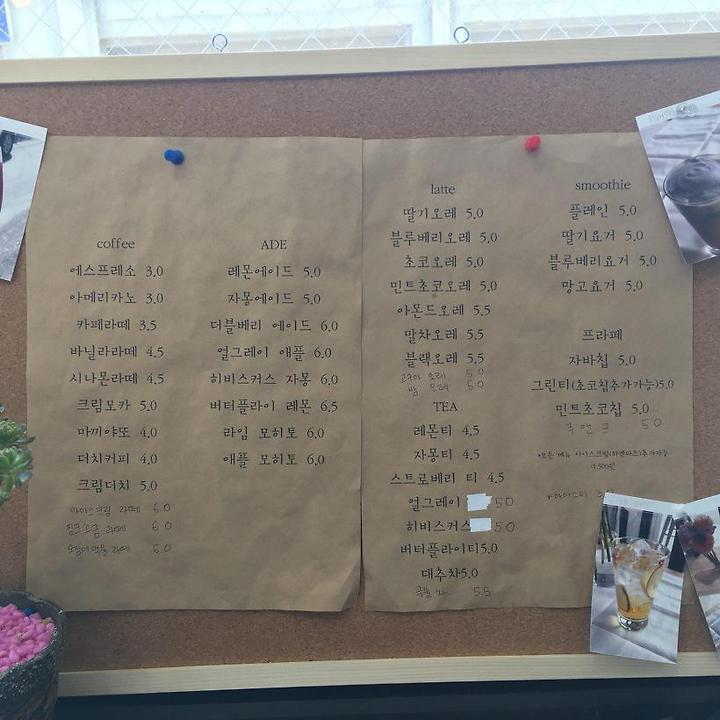 coffee
에스프레소 3.0
아메리카노 3.0
카페라떼 3.5
바닐라라떼 4.5
시나몬라떼 4.5
크림모카 5.0
마끼야또 4.0
더치커피 4.0
크림더치 5.0
아이스크림 라떼 6.0
핑크소금 라떼 6.0
오징어먹물 라떼 6.0
ADE
레몬에이드 5.0
자몽에이드 5.0
더블베리 에이드 6.0
얼그레이 애플 6.0
히비스커스 자몽 6.0
버터플라이 레몬 6.5
라임 모히토 6.0
애플 모히토 6.0
latte
딸기오레 5.0
블루베리오레 5.0
초코오레 5.0
민트초코오레 5.0
아몬드오레 5.5
말차오레 5.5
블랙오레 5.5
고구마 오레 5.0
밤 오레 5.0
TEA
레몬티 4.5
자몽티 4.5
스트로베리 티 4.5
얼그레이 5.0
히비스커스 5.0
버터플라이티5.0
대추차5.0
5.5
smoothie
플레인 5.0
딸기요거 5.0
블루베리요거 5.0
망고요거 5.0
프라페
자바칩 5.0
그린티(초코칩추가가능)5.0
민트초코칩 5.0
쿠앤크 5.0
*모든 메뉴 아이스크림(하겐다즈)추가가능
1,500원